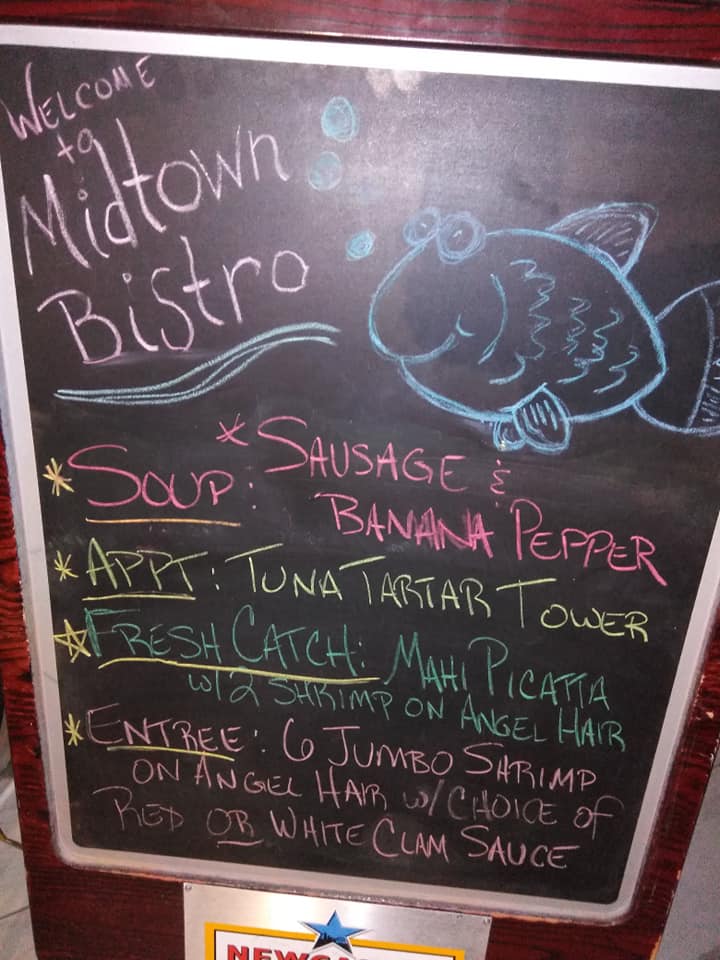 WELCOME
to
Midtown
Bistro
* SOUP: * SAUSAGE &
BANANA PEPPER
* APPT: TUNA TARTAR TOWER
☆ FRESH CATCH: MAHI PICATTA
W/2 SHRIMP ON ANGEL HAIR
* ENTREE: 6 JUMBO SHRIMP
ON ANGEL HAIR W/CHOICE OF
RED OR WHITE CLAM SAUCE